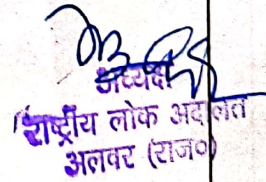 अध्यक्ष
राष्ट्रीय लोक अदालत
अलवर (राज०)